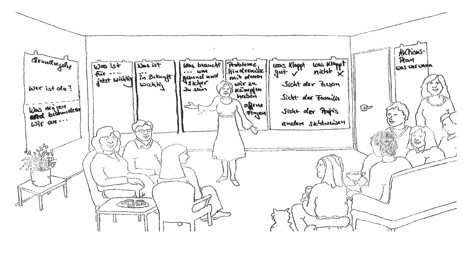 Grundregeln
Wer ist da?
Was mögen
wir an ...
Was ist
für ....
jetzt wichtig
Was ist
in Zukunft
wichtig
Was braucht
... um
gesund und
sicher
zu sein
Probleme,
Hindernisse
mit denen
wir zu
kämpfen
haben
offene
Fragen
was klappt
gut ✓
was klappt
nicht ✗
Sicht der Person
Sicht der Familie
Sicht der Profis
andere Sichtweisen
Aktions-
Plan
was wer wann